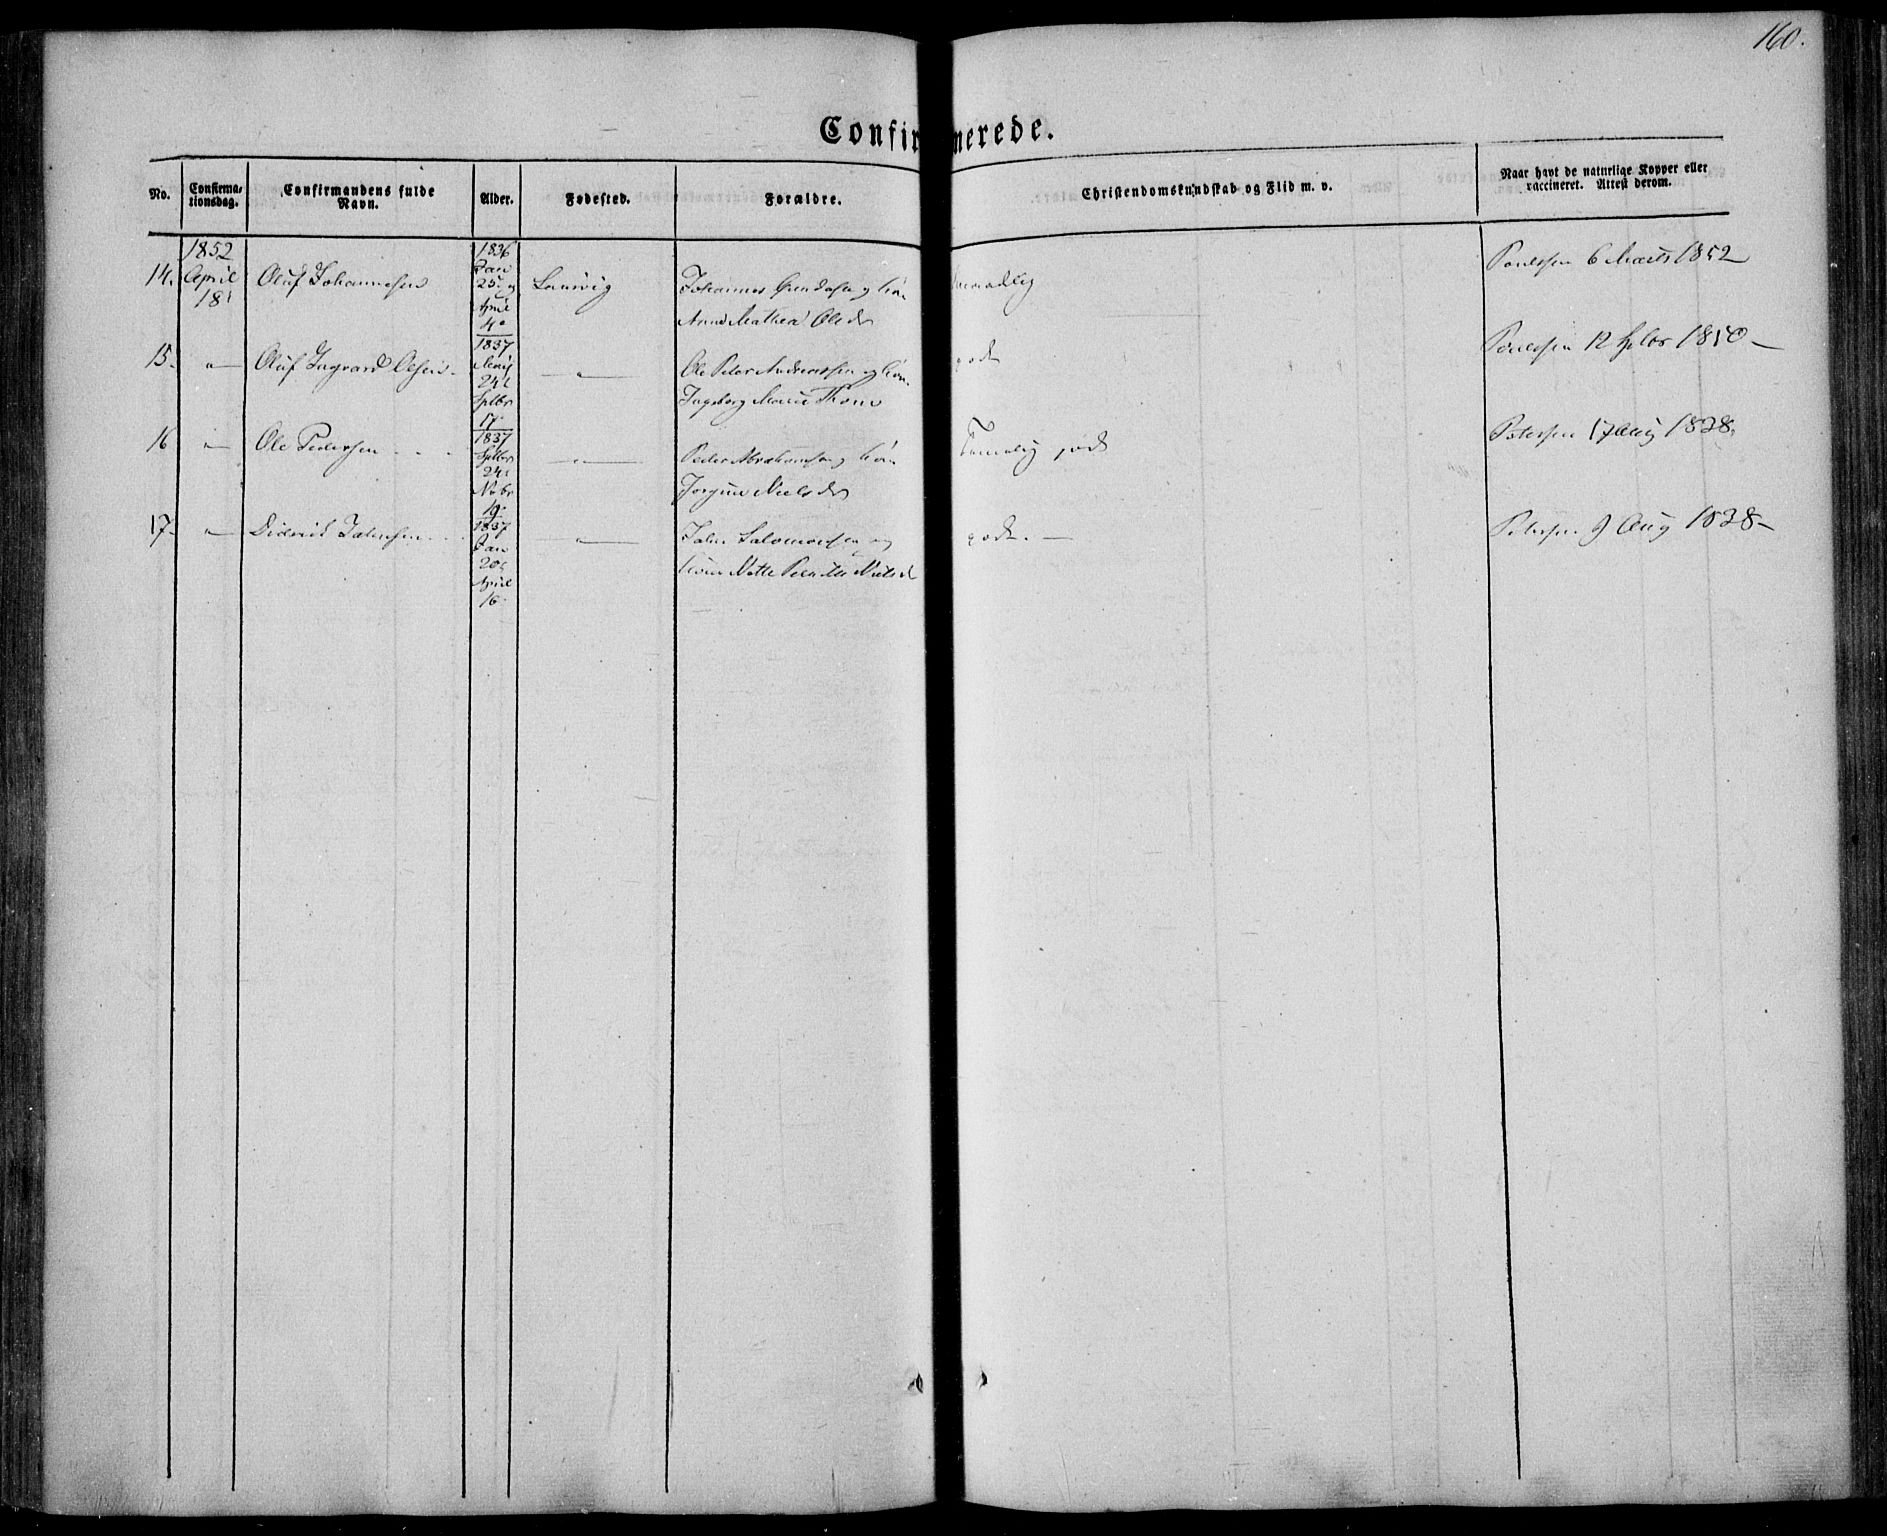 160.
Confirmerede.
No.
Confirma-
tionsdag.
Confirmandens fulde
Navn.
Alder.
Fødested.
Forældre.
Christendomskundskab og Flid m. v.
Naar havt de naturlige Kopper eller
vaccineret. Attest derom.
1852
14. April
18.
Oluf Johannesen
1836
Jan
25. og
April
4.
Laurvig
Johannes
Anne Mathea Olsdr
maadelig
Poulssen 6 Marts 1852
15. "
Oluf Ingvard Olsen.
1837
24.
Sptbr
17
"
Ole Peder Andreassen og Kone
Ingeborg Marie Thone
godt
Poulssen 12 1850
16 "
Ole Pedersen
1837
Sptbr
24.
Novbr
19.
"
Peder Abrahamsen og Kone
Jørgine Nielsdr
Temmelig godt
Petersen 17 Aug 1838.
17. "
Didrik Jahnsen
1837
Jan
20.
April
16.
"
Jahn Salomonsen og
Kone Mette Pernille Nielsd
godt.
Petersen 9 Aug 1838